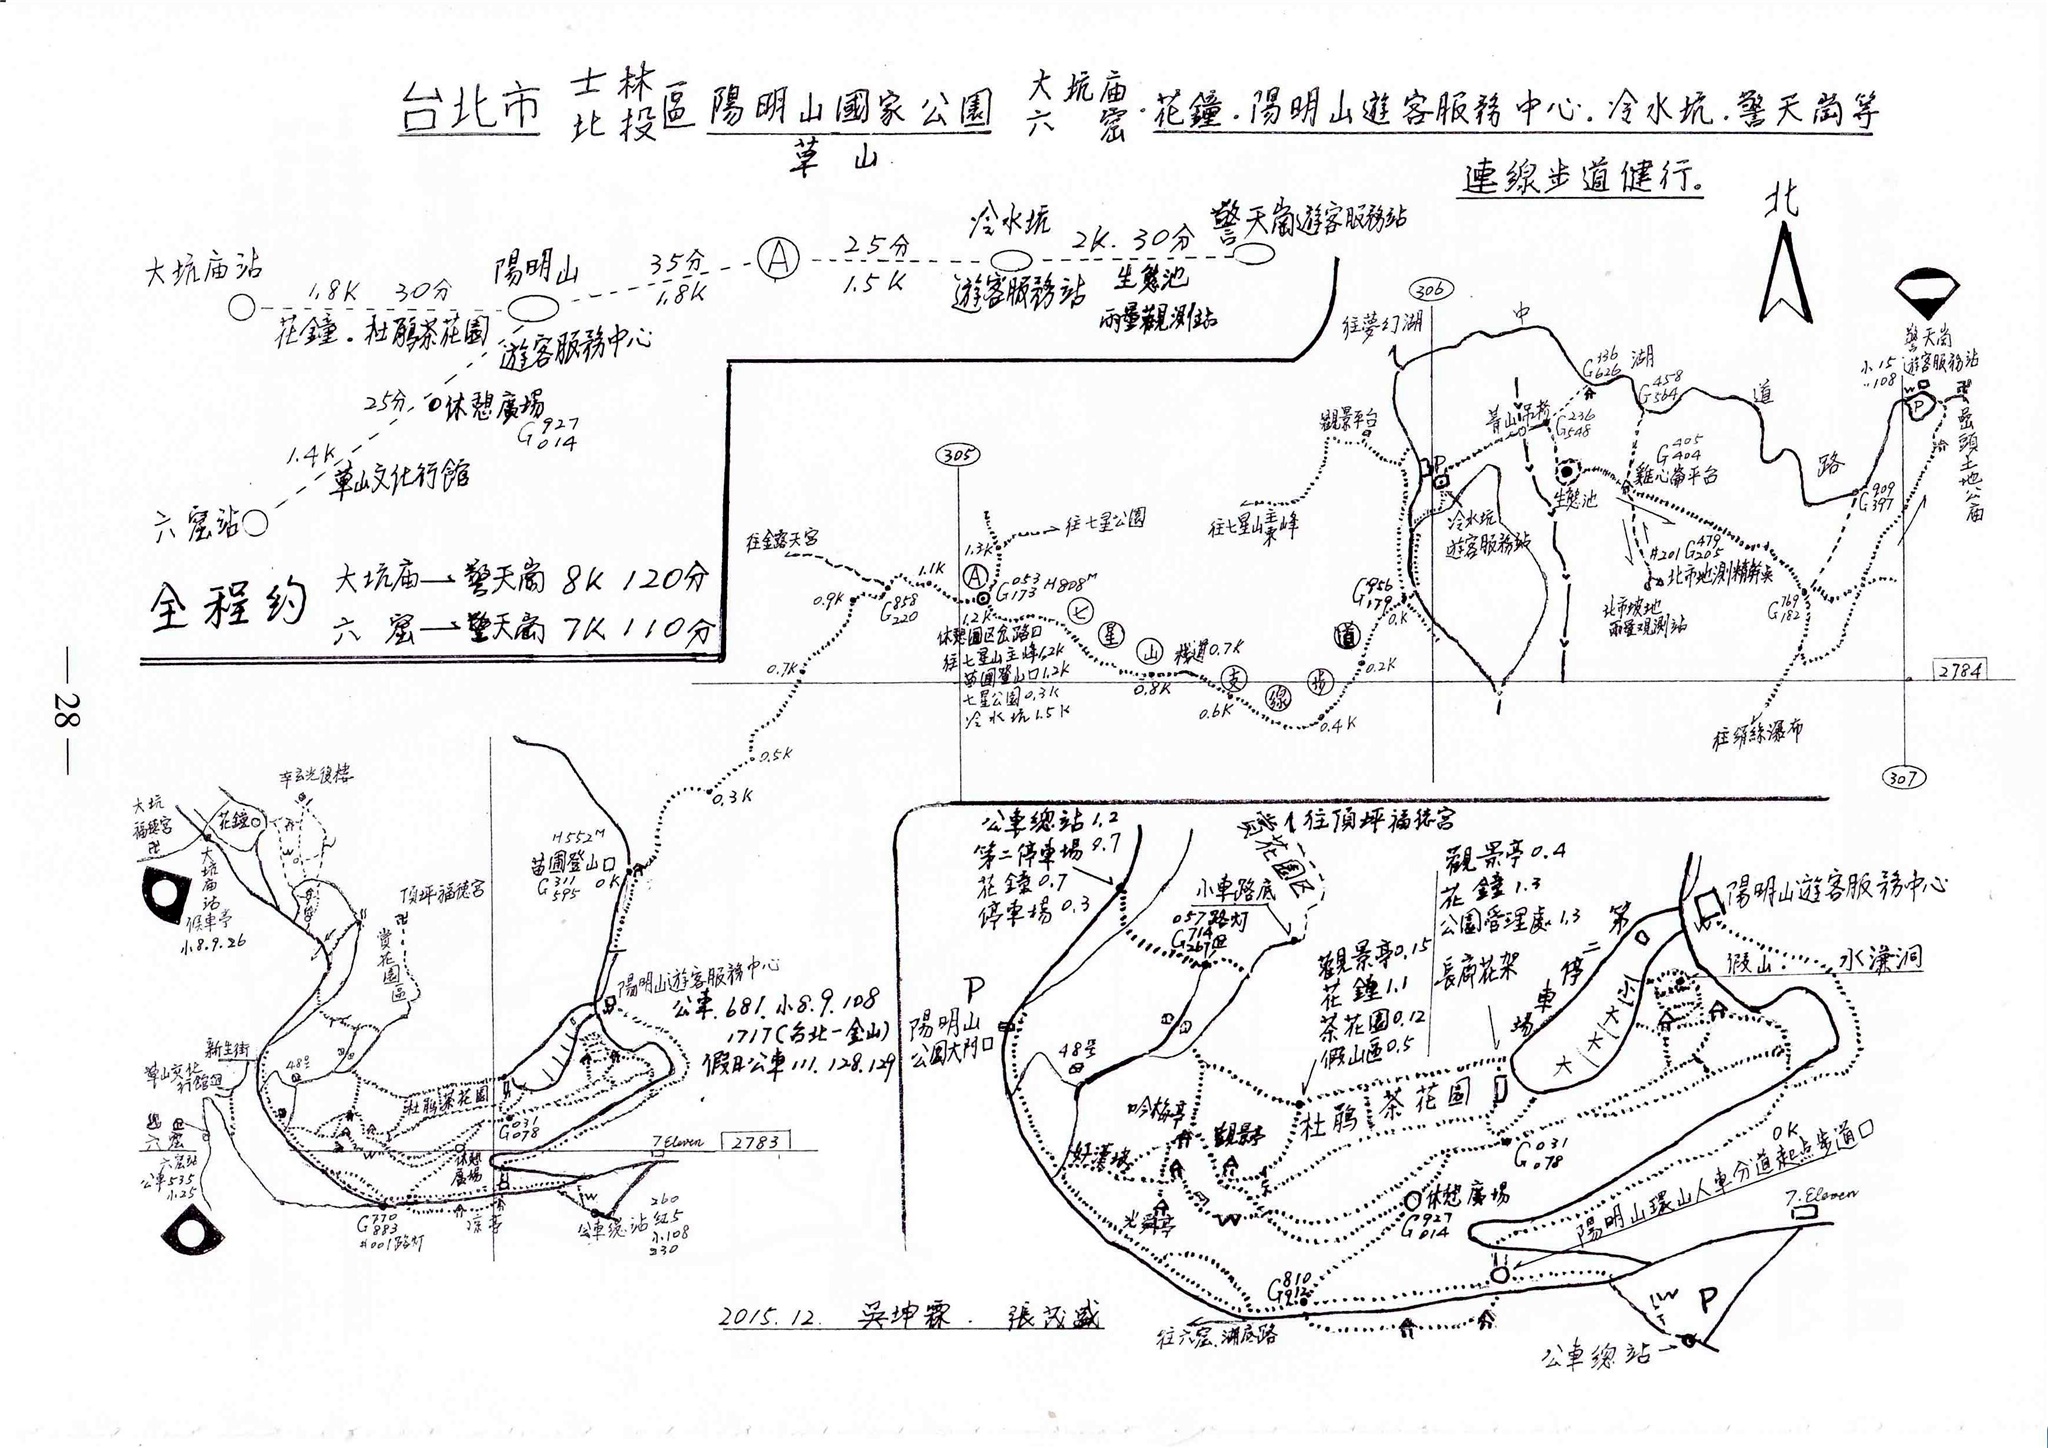 台北市 士林 北投 區 陽明山國家公園 大坑庙 六窟 · 花鐘 · 陽明山遊客服務中心 · 冷水坑 · 警天崗等
草山
連線步道健行。
北
大坑庙站
1.8K 30分
花鐘 · 杜鵑茶花園
陽明山
遊客服務中心
35分
1.8K
A
25分
1.5K
冷水坑
遊客服務站
2K. 30分
生態池
雨量觀測站
警天崗遊客服務站
25分
休憩廣場
G 927 014
1.4K
草山文化行館
六窟站
全程約
大坑庙→警天崗 8K 120分
六窟→警天崗 7K 110分
— 28 —
305
306
307
2784
2783
往夢幻湖
中
湖
道
路
G 336 626
G 458 564
菁山吊桥
G 236 548
G 405 404
雞心崙平台
生態池
觀景平台
往七星山主東峰
P
冷水坑
遊客服務站
警天崗
遊客服務站
小15
〃108
W
P
嵒頭土地公庙
G 909 397
#201 G 479 205
北市地測精幹点
北市坡地
雨量观測站
G 769 182
往絹絲瀑布
往金露天宮
往七星公園
1.3K
1.1K
0.9K
G 858 220
A
G 053 173 H808M
1.2K
休憩園区岔路口
往七星山主峰1.2K
苗圃登山口1.2K
七星公園0.3K
冷水坑1.5K
七星山支線步道
棧道0.7K
0.8K
0.6K
0.4K
0.2K
G 956 179
0.K
0.7K
0.5K
0.3K
H552M
苗圃登山口
G 311 595 0K
辛亥光復樓
大坑
福德宮
花鐘
大坑庙站
候車亭
小8.9.26
頂坪福德宮
賞花園區
陽明山遊客服務中心
公車.681.小8.9.108
1717(台北一金山)
假日公車111.128.129
新生街
草山文化
行館
48号
杜鵑茶花園
G 031 078
休憩
廣場
7 Eleven
六窟
六窟站
公車535
小25
G 770 883
#001路灯
涼亭
W
公車總站
260
紅5
小108
230
公車總站1.2
第二停車場0.7
花鐘0.7
停車場0.3
賞花園区
往頂坪福德宮
小車路底
057路灯
G 714 267
觀景亭0.4
花鐘1.3
公園管理處.1.3
長廊花架
觀景亭0.15
花鐘1.1
茶花園0.12
假山區0.5
第二停車場
大 大 大 小
陽明山遊客服務中心
假山.
水濂洞
P
陽明山
公園大門口
48号
吟梅亭
好漢坡
觀景亭
光舜亭
W
杜鵑茶花園
G 031 078
休憩廣場
G 927 014
0K
陽明山環山人車分道起点步道口
7. Eleven
G 810 912
往六窟.湖底路
W
P
公車總站
2015.12. 吳坤霖 . 張茂盛